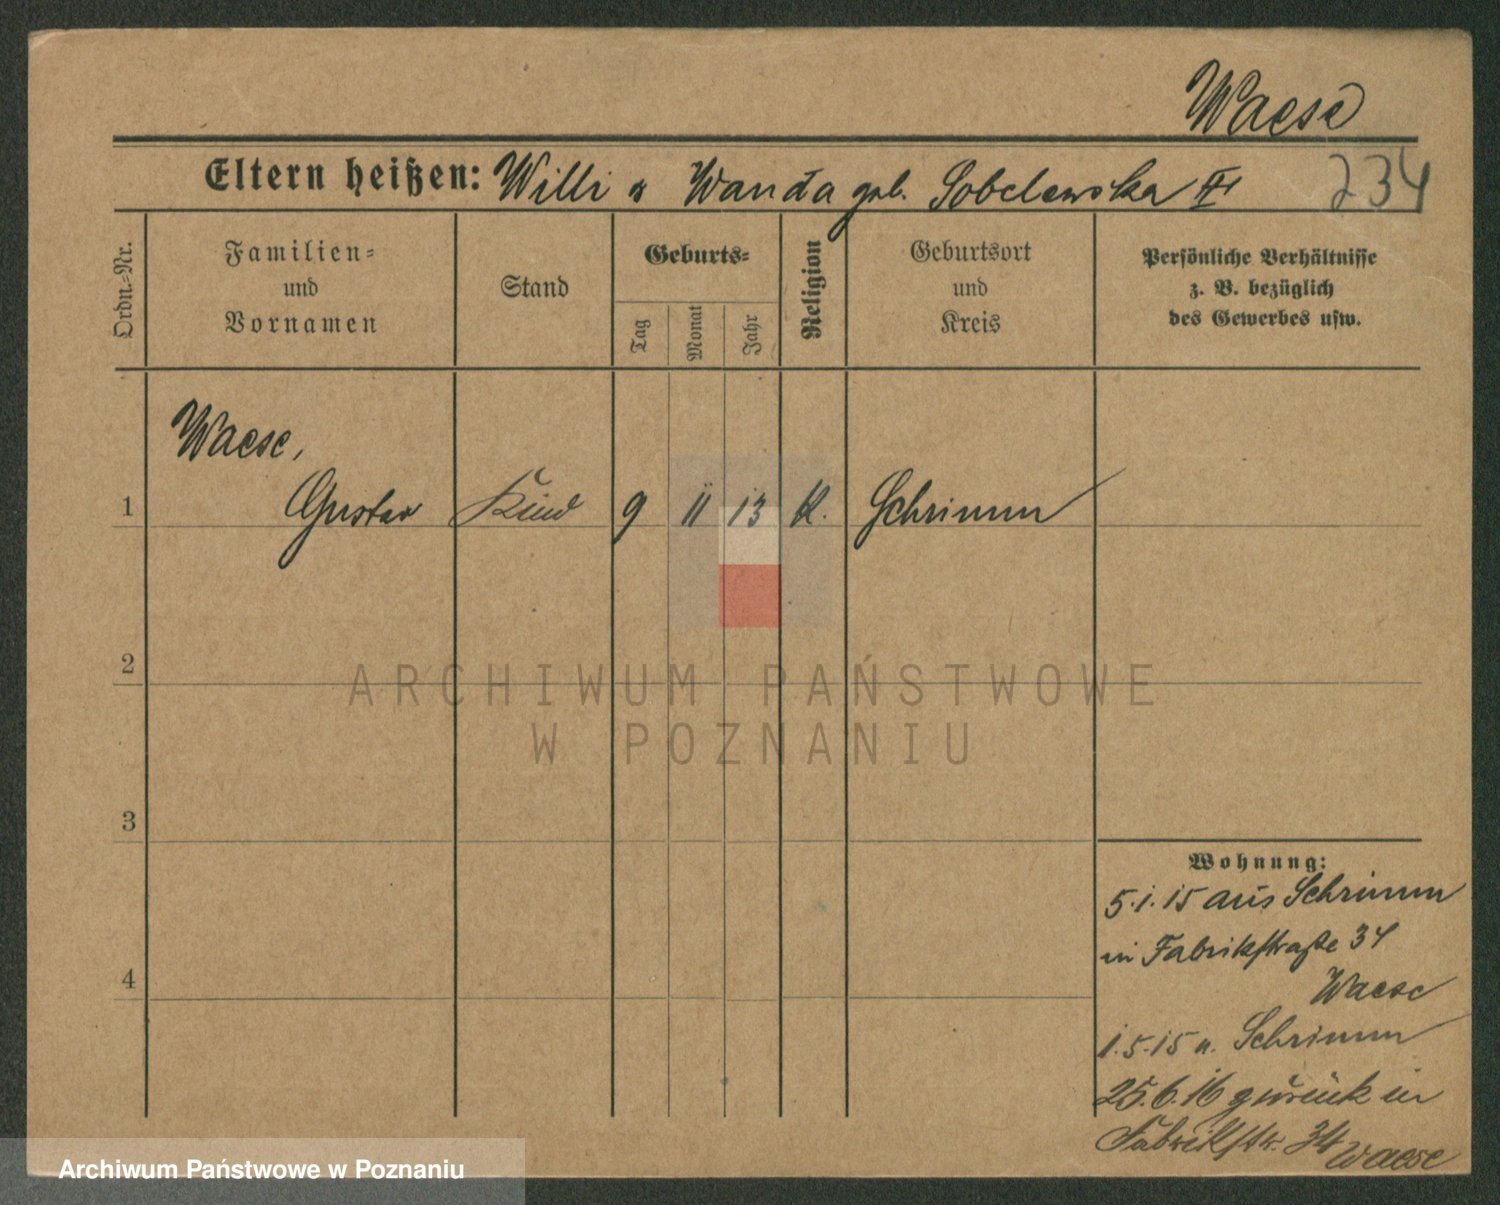 Waese
Eltern heißen: Willi u Wanda geb. Sobelewska II
234
Ordn.-Nr.
Familien-
und
Vornamen
Stand
Geburts-
Tag
Monat
Jahr
Religion
Geburtsort
und
Kreis
Persönliche Verhältnisse
z. B. bezüglich
des Gewerbes usw.
Waese,
1 Gustav Kind 9 11 13 K. Schrimm
2
3
4
ARCHIWUM PAŃSTWOWE
W POZNANIU
Wohnung:
5.1.15 aus Schrimm
in Fabrikstraße 34
Waese
1.5.15 n. Schrimm
25.6.16 zurück in
Fabrikstr. 34 Waese
Archiwum Państwowe w Poznaniu